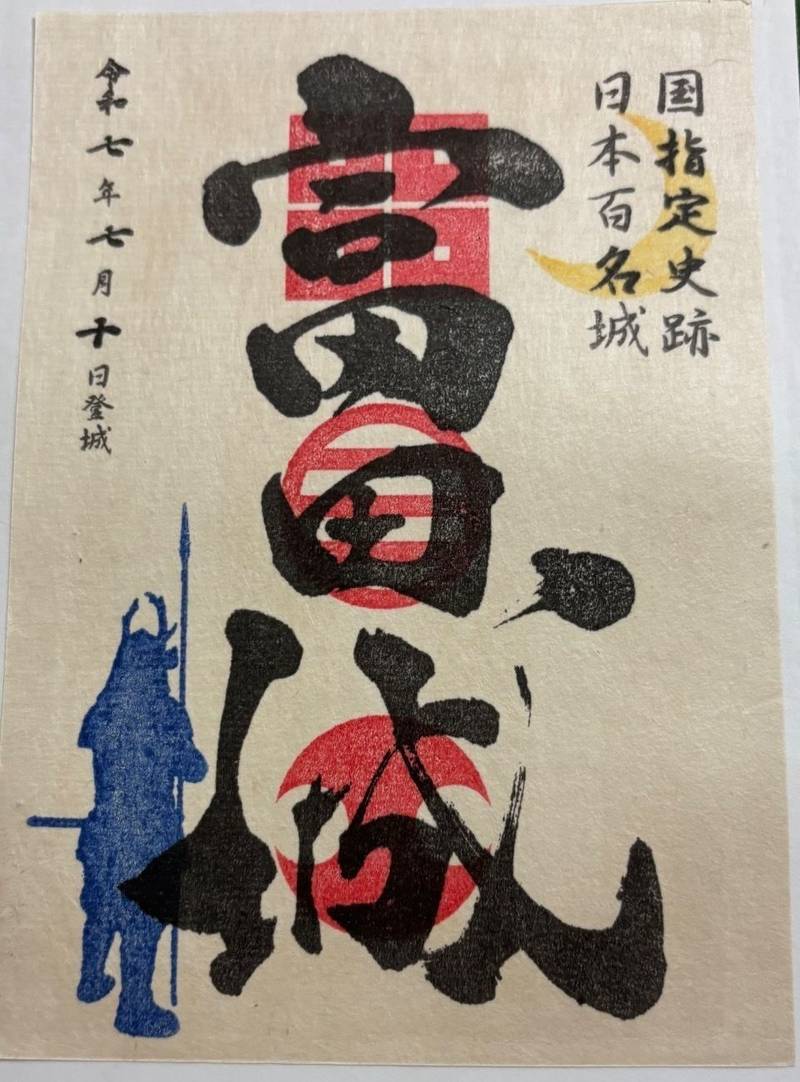 国指定史跡
日本百名城
富田城
令和七年七月十日登城